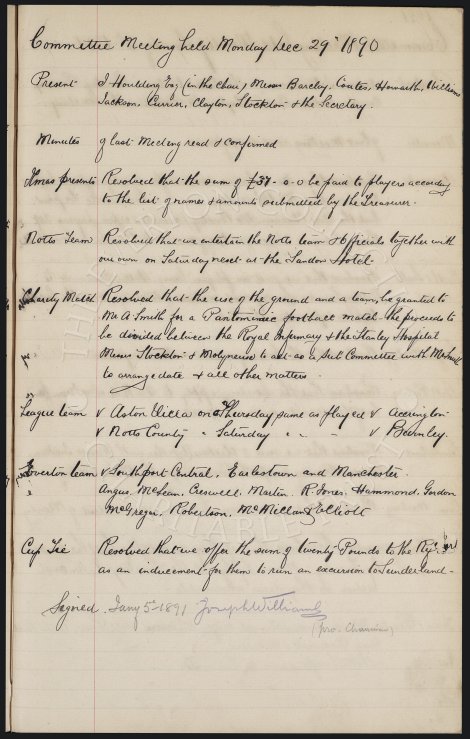 Committee Meeting held Monday Dec 29th 1890
Present J Houlding Esq (in the chair) Messrs Barclay, Coates, Howarth, Williams
Jackson, Currier, Clayton, Stockton & the Secretary.
Minutes of last Meeting read & confirmed
Xmas presents Resolved that the sum of £37-0-0 be paid to players according
to the list of names & amounts submitted by the Treasurer.
Notts Team Resolved that we entertain the Notts team & Officials together with
our own on Saturday next at the Sandon Hotel
Charity Match Resolved that the use of the ground and a team, be granted to
Mr A Smith for a Pantomimic football match the proceeds to
be divided between the Royal Infirmary & the Stanley Hospital
Messrs Stockton & Molyneux to act as a Sub Committee with Mr Smith
to arrange date & all other matters.
League team v Aston Villa on Thursday same as played v Accrington
v Notts County " Saturday " " " v Burnley.
Everton team v Southport Central, Earlestown and Manchester.
Angus, McLean, Creswell, Martin, R. Jones, Hammond, Gordon
McGregor, Robertson, McMillan & Elliott
Cup Tie Resolved that we offer the sum of twenty Pounds to the Ry. Co
as an inducement for them to run an excursion to Sunderland -
Signed Jany 5th 1891 Joseph Williams
(pro. Chairman)